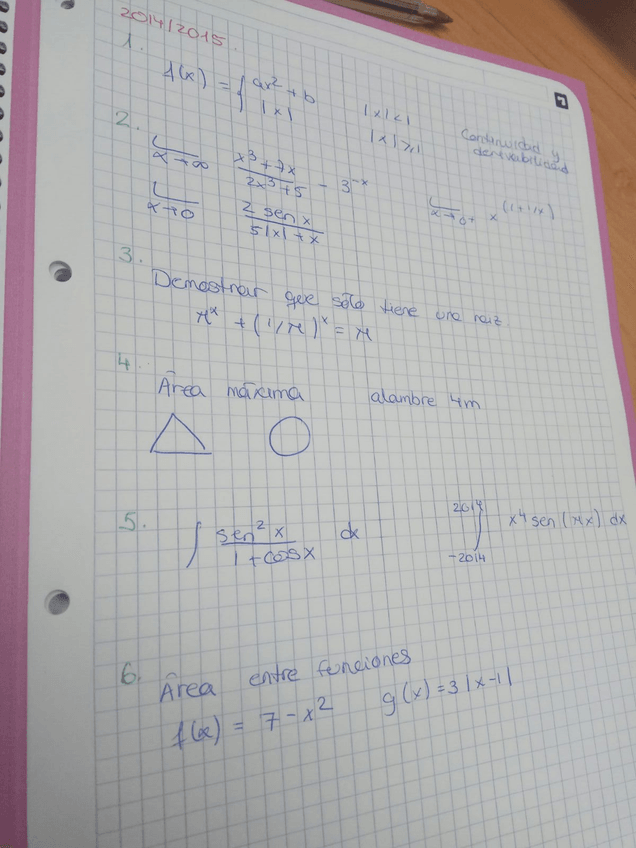 2014/2015.
1.
f(x) = { ax² + b |x| < 1
|x| |x| ≥ 1
Continuidad y
derivabilidad
2.
L x→∞ x³ + 7x / 2x³ + 5 - 3^-x
L x→0 2 sen x / 5|x| + x
L x→0+ x^(1+1/x)
3.
Demostrar que sólo tiene una raiz
π^x + (1/π)^x = π
4.
Área máxima alambre 4m
5.
∫ sen² x / 1 + cosx dx
∫ 2014 -2014 x⁴ sen(πx) dx
6.
Área entre funciones
f(x) = 7 - x² g(x) = 3|x-1|